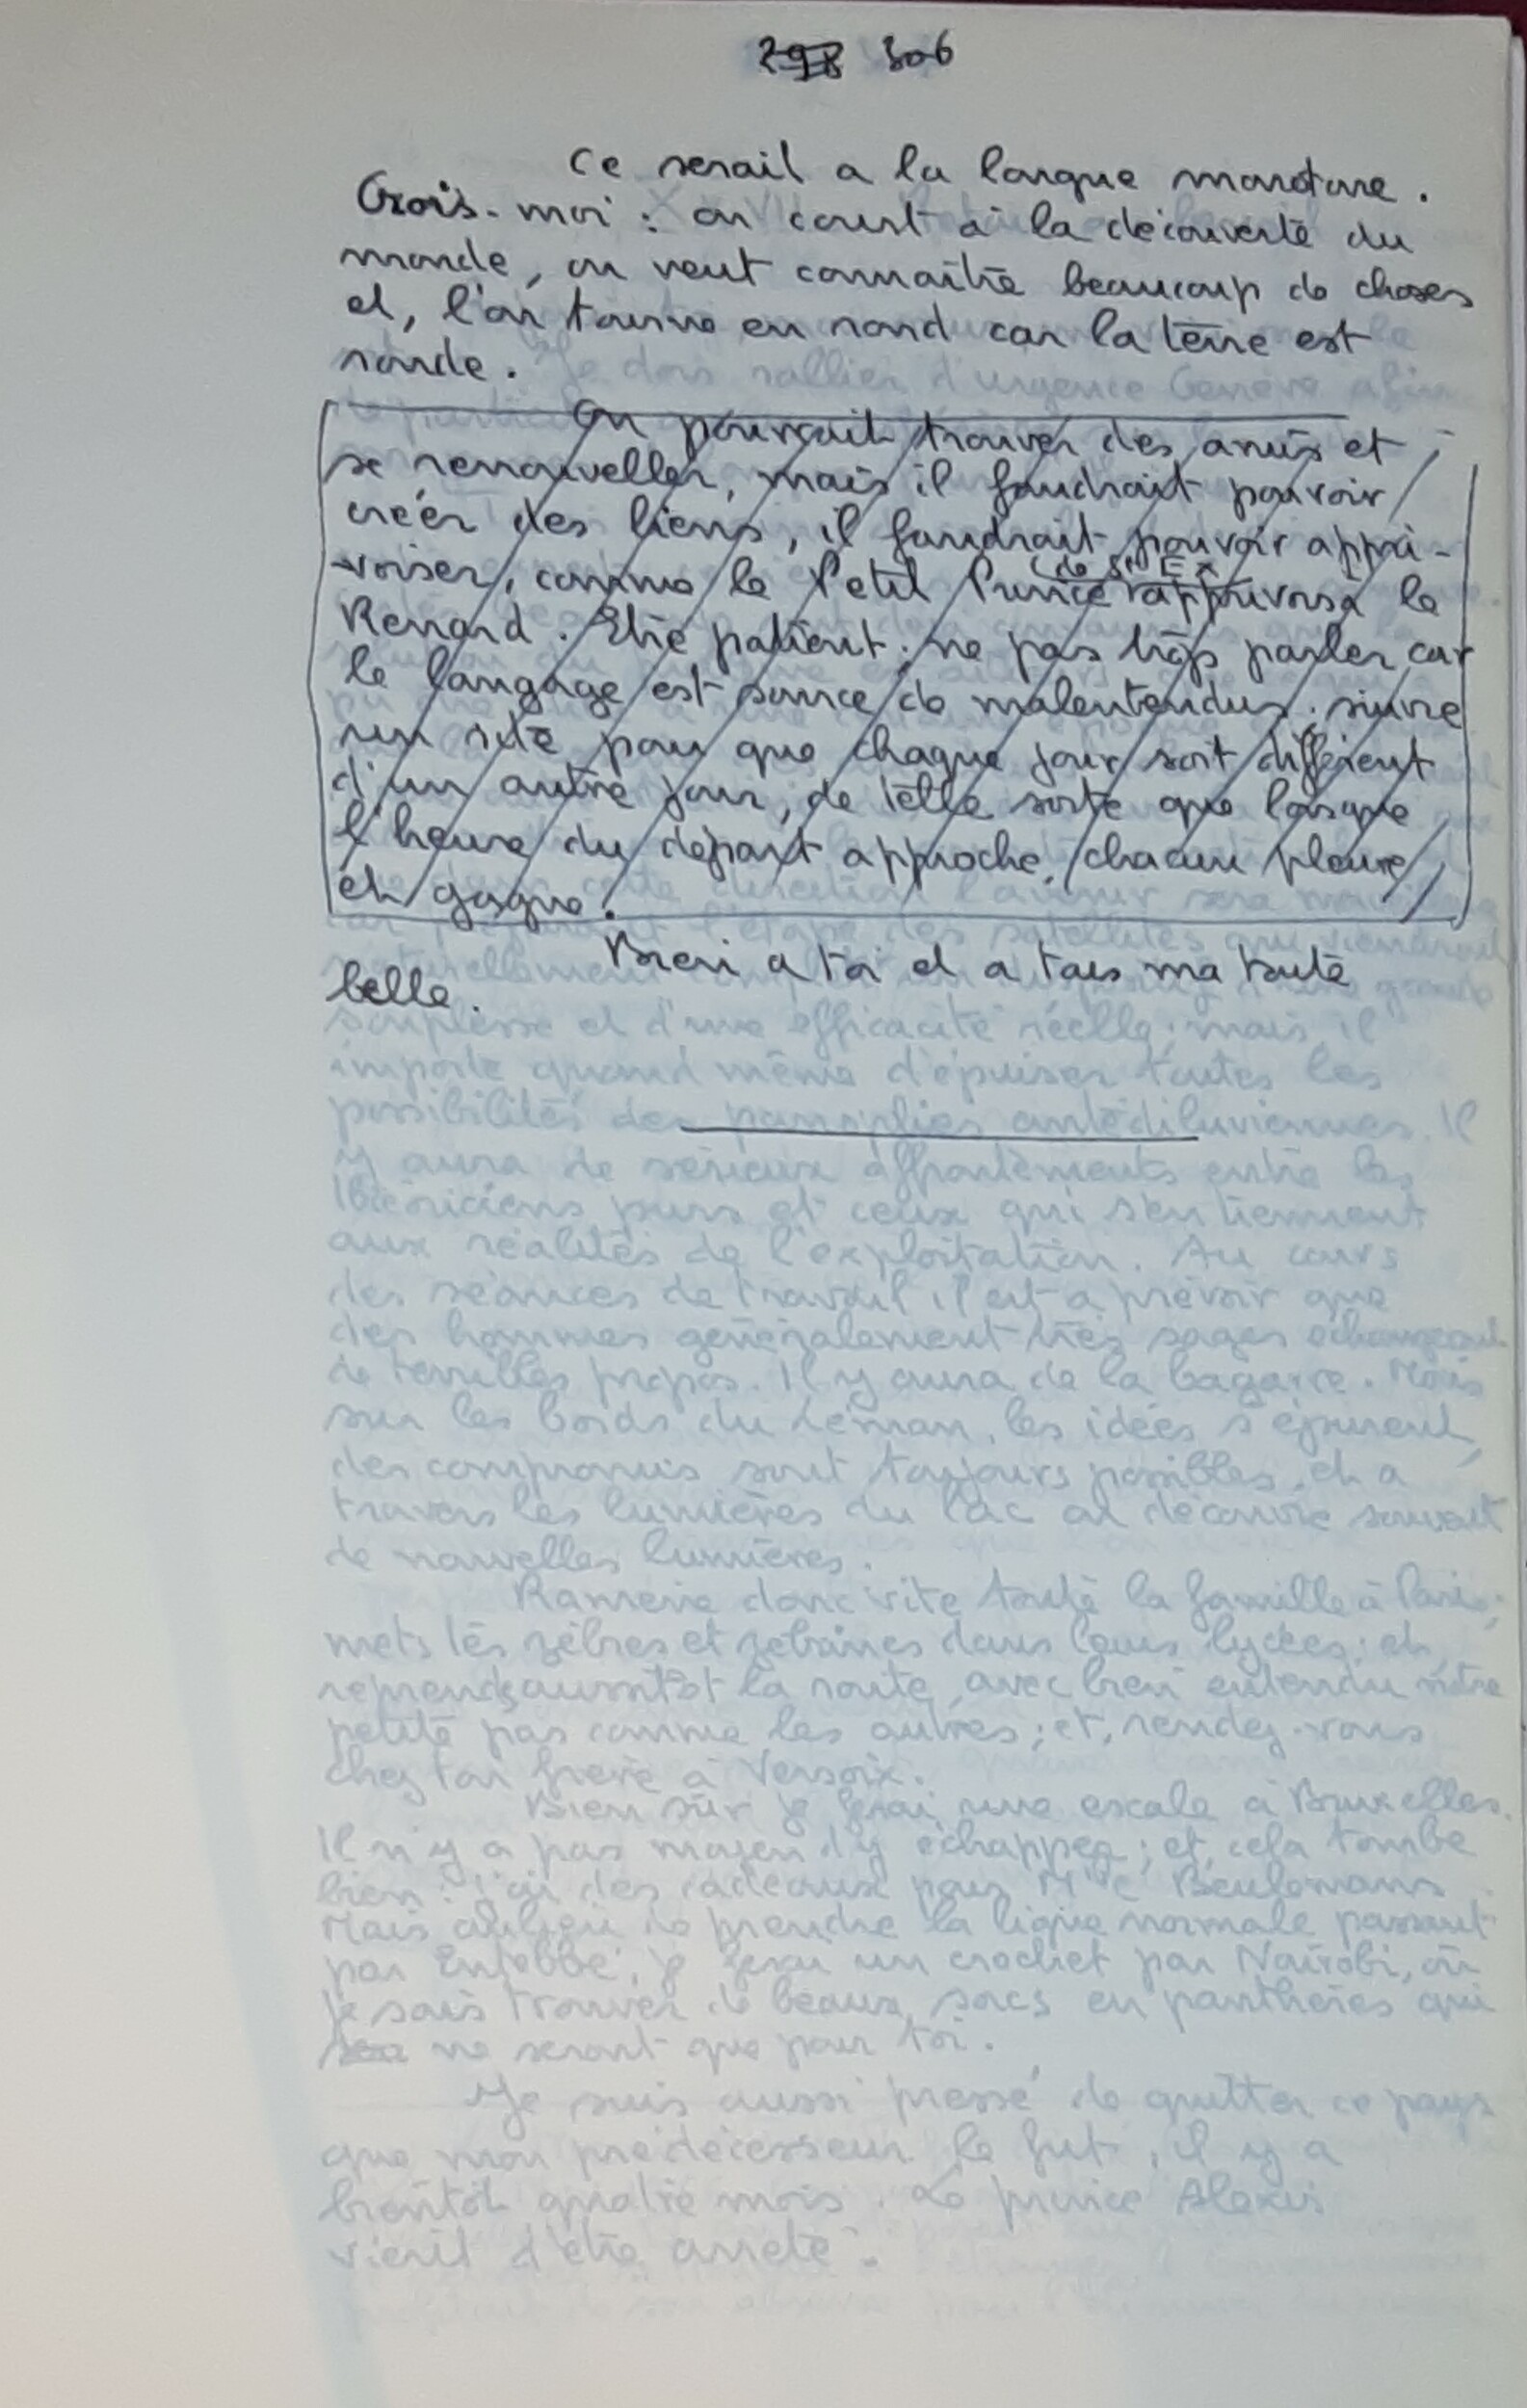 298 306
Ce serait a la longue monotone.
Crois-moi : on court à la découverte du
monde, on veut connaître beaucoup de choses
et, l'on tourne en rond car la terre est
ronde.
On pourrait trouver des amis et
se renouveller, mais il faudrait pouvoir
créer des liens, il faudrait pouvoir appri-
voiser, comme le Petit Prince de St Ex apprivoisa le
Renard. Etre patient ; ne pas trop parler car
le langage est source de malentendus ; suivre
un rite pour que chaque jour soit différent
d'un autre jour, de telle sorte que lorsque
l'heure du départ approche, chacun pleure
et gagne.
Bien a toi et a tous ma toute
belle.
souplesse et d'une efficacité réelle ; mais il
importe quand même d'épuiser toutes les
possibilités des panoplies antédiluviennes. Il
y aura de sérieux affrontements entre les
théoriciens purs et ceux qui s'en tiennent
aux réalités de l'exploitation. Au cours
des séances de travail il est a prévoir que
des hommes généralement très sages échangeront
de terribles propos. Il y aura de la bagarre. Mais
sur les bords du Léman, les idées s'épurent,
des compromis sont toujours possibles, et a
travers les lumières du lac on découvre souvent
de nouvelles lumières.
Ramène donc vite toute la famille à Paris ;
mets les zèbres et zébrines dans leurs lycées ; et
reprends aussitôt la route, avec bien entendu notre
petite pas comme les autres ; et, rendez-vous
chez ton frère à Versoix.
Bien sûr je ferai une escale à Bruxelles.
Il n'y a pas moyen d'y échapper ; et, cela tombe
bien : j'ai des cadeaux pour Mlle Beulemans.
Mais au lieu de prendre la ligne normale passant
par Entebbé, je ferai un crochet par Nairobi, où
je sais trouver de beaux sacs en panthères qui
ne seront que pour toi.
Je suis aussi pressé de quitter ce pays
que mon prédécesseur le fut, il y a
bientôt quatre mois. Le prince Alexis
vient d'être arrêté.